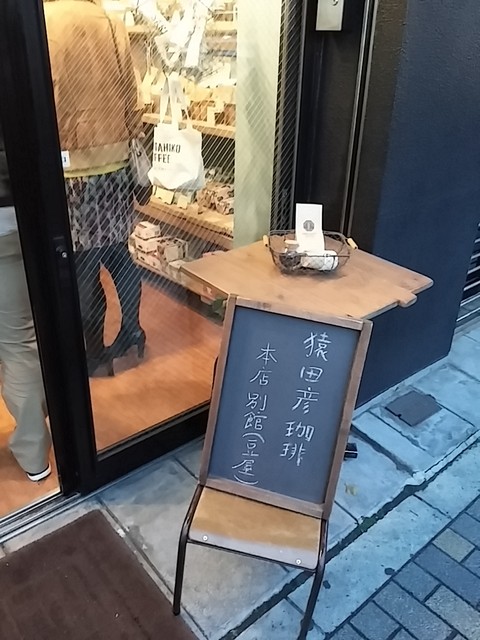 猿田彦珈琲
本店別館(豆屋)
TAHIKO
FFEE